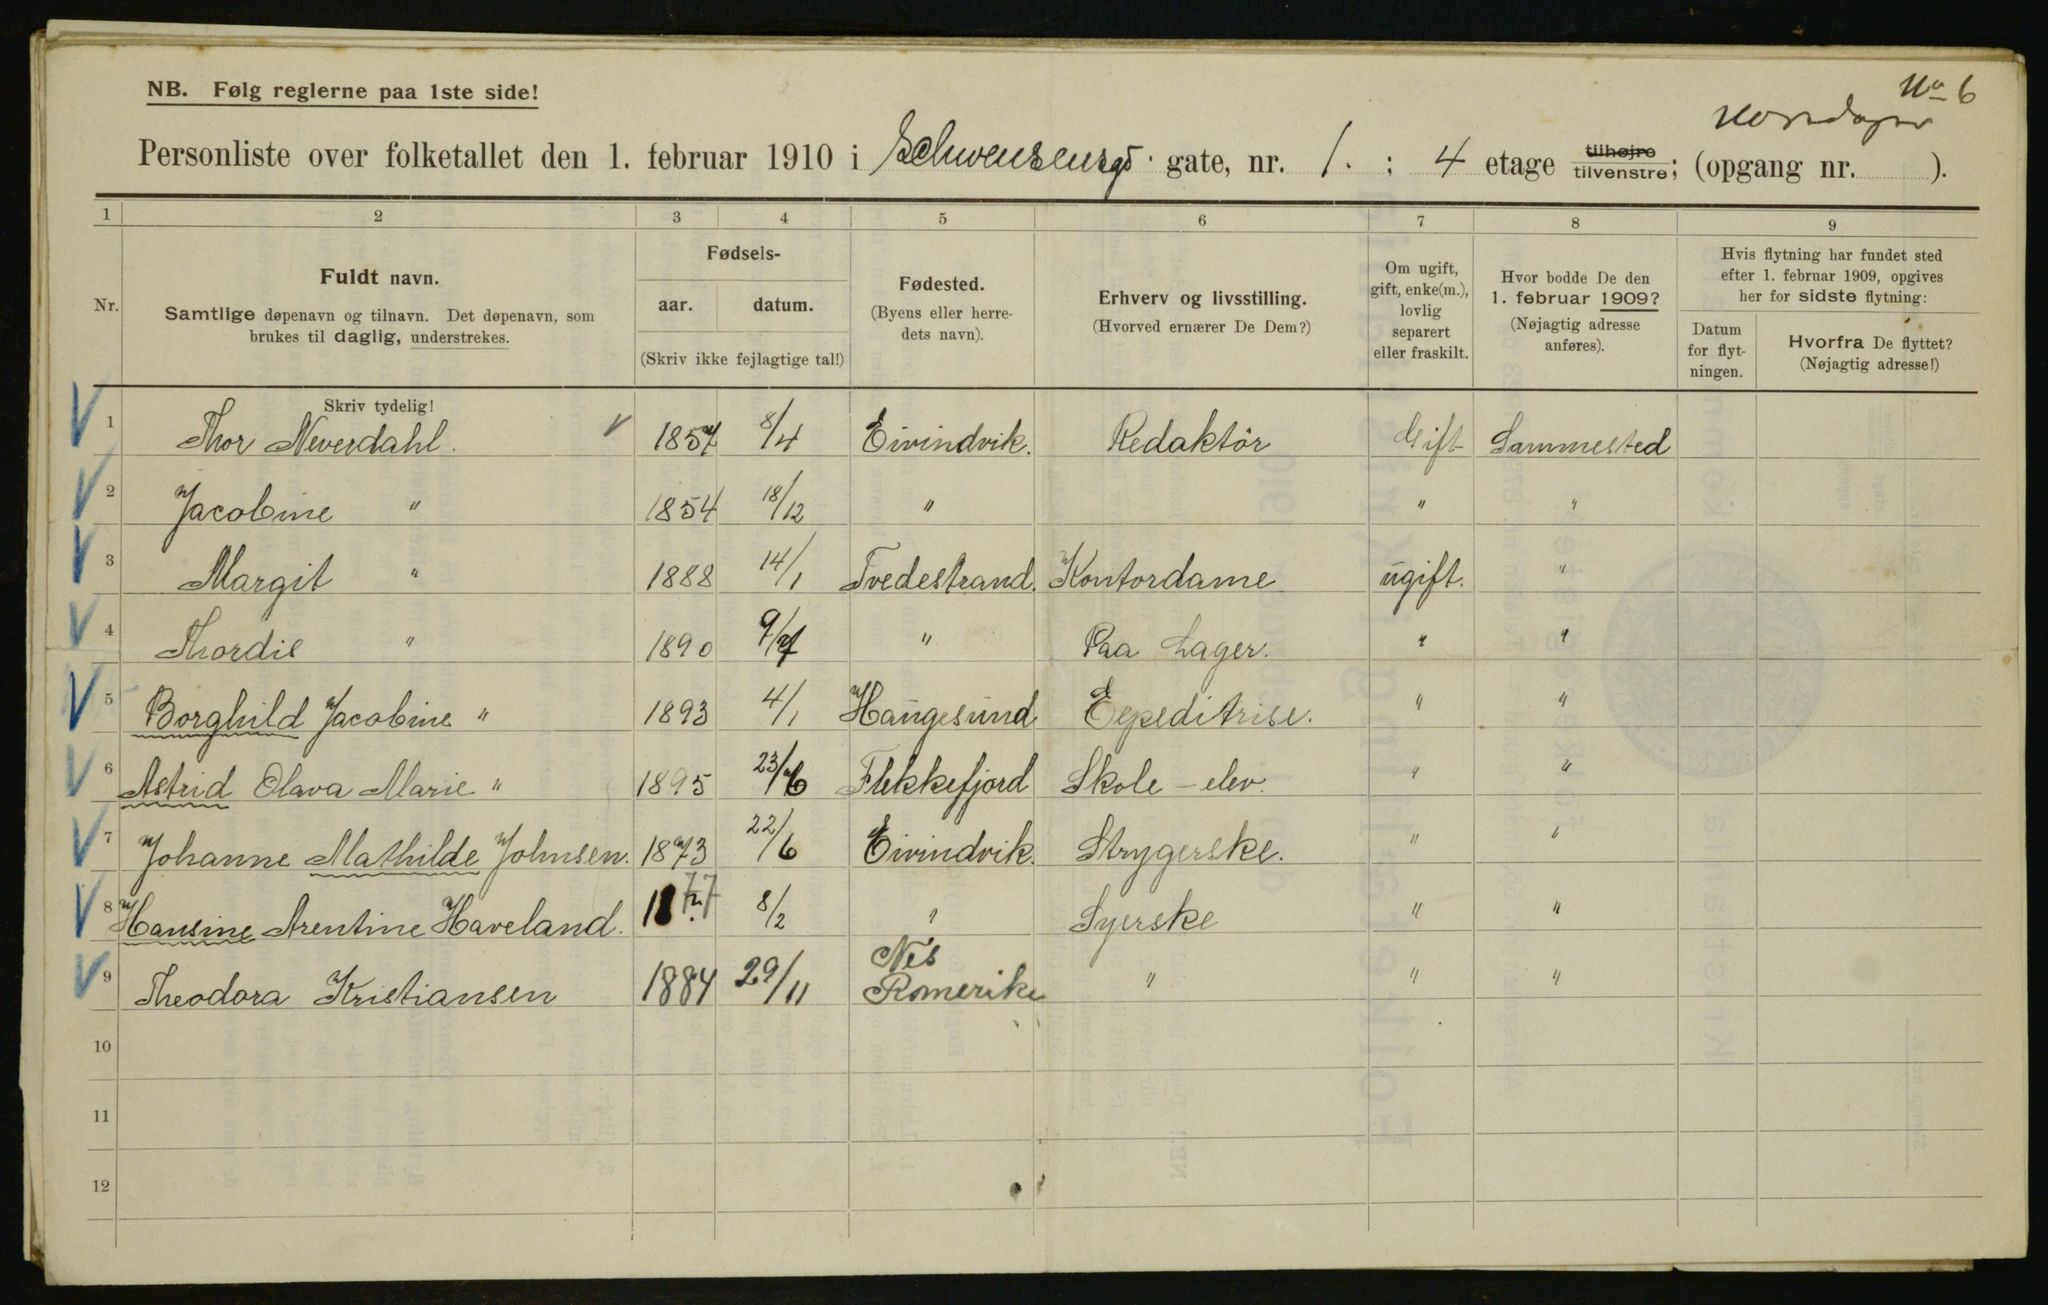 No 6
NB. Følg reglerne paa 1ste side!
Personliste over folketallet den 1. februar 1910 i Schwensensgt. gate, nr. 1. ; 4 etage tilhøjre tilvenstre; (opgang nr. ).
1 2 3 4 5 6 7 8 9
Nr.
Fuldt navn.
Samtlige døpenavn og tilnavn. Det døpenavn, som
brukes til daglig, understrekes.
Fødsels-
aar. datum.
(Skriv ikke fejlagtige tal!)
Fødested.
(Byens eller herre-
dets navn).
Erhverv og livsstilling.
(Hvorved ernærer De Dem?)
Om ugift,
gift, enke(m.),
lovlig
separert
eller fraskilt.
Hvor bodde De den
1. februar 1909?
(Nøjagtig adresse
anføres).
Hvis flytning har fundet sted
efter 1. februar 1909, opgives
her for sidste flytning:
Datum
for flyt-
ningen.
Hvorfra De flyttet?
(Nøjagtig adresse!)
Skriv tydelig!
1 Thor Neverdahl. 1857 8/4 Eivindvik. Redaktör Gift Sammested
2 Jacobine " 1854 18/12 " " "
3 Margit " 1888 14/1 Tvedestrand. Kontordame ugift. "
4 Thordis " 1890 9/7 " Paa Lager. " "
5 Borghild Jacobine " 1893 4/1 Haugesund Expeditrise. " "
6 Astrid Olava Marie " 1895 23/6 Flekkefjord Skole - elev. " "
7 Johanne Mathilde Johnsen. 1873 22/6 Eivindvik. Strygerske. " "
8 Hansine Arentine Haveland. 1877 8/2 " Syerske " "
9 Theodora Kristiansen 1884 29/11 Nes Romerike " " "
10
11
12